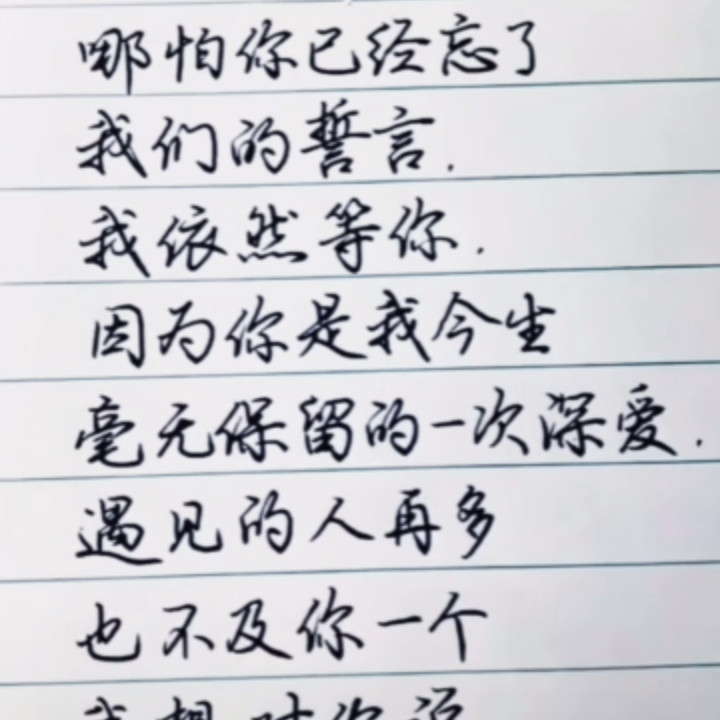 哪怕你已经忘了
我们的誓言.
我依然等你.
因为你是我今生
毫无保留的一次深爱.
遇见的人再多
也不及你一个
我想对你说